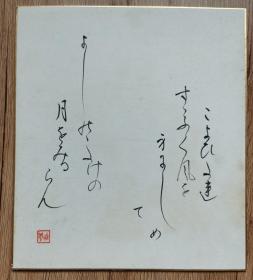 こよひ多連
すゝふく風を
身尓しめ
て
よしのゝたけの
月をみるらん